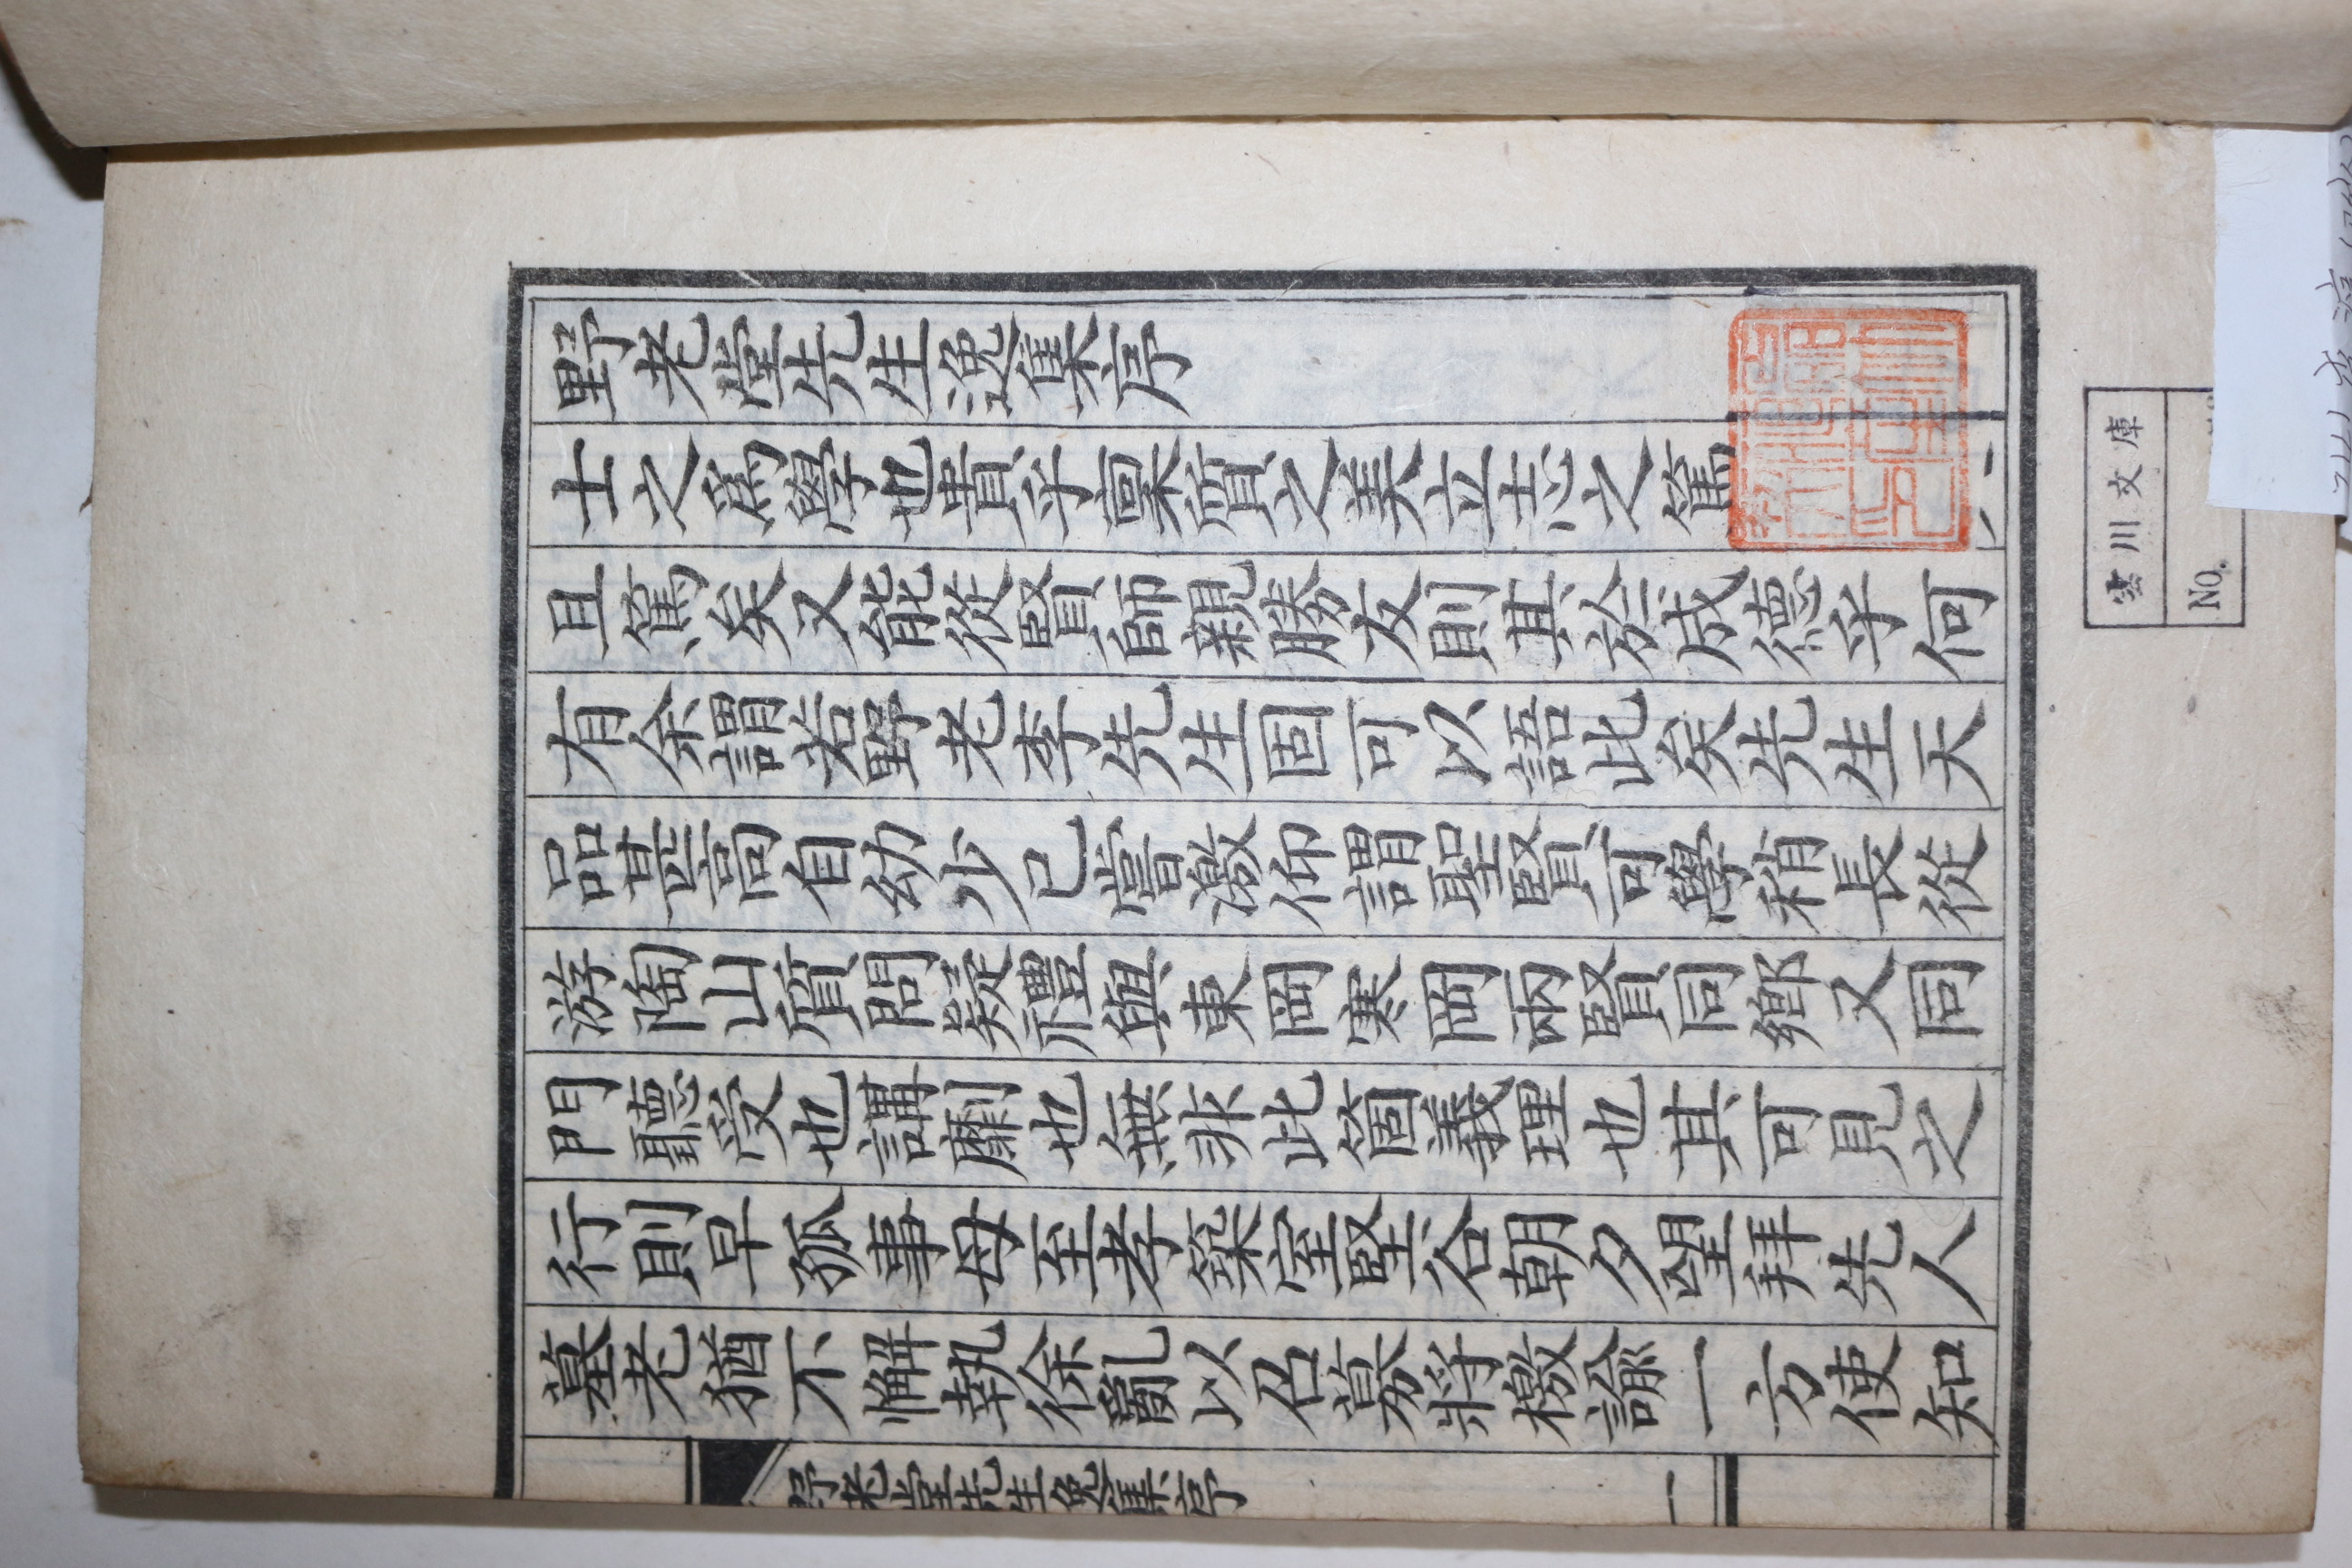 野老堂先生逸集序
士之爲學也貴乎稟質之美立志之篤
且篤矣又能從賢師親勝友則其於成德乎何
有余謂若野老李先生固可以語此矣先生天
品甚高自幼少已嘗激仰謂聖賢可學稍長從
游陶山質問疑禮與東岡寒岡兩賢同鄉又同
門聽受也講劘也無非此箇義理也其可見之
行則早孤事母至孝築室堅谷朝夕望拜先人
墓老猶不懈執徐亂以召募將檄諭一方使知
野老堂先生逸集序
一
雲川文庫
NO.